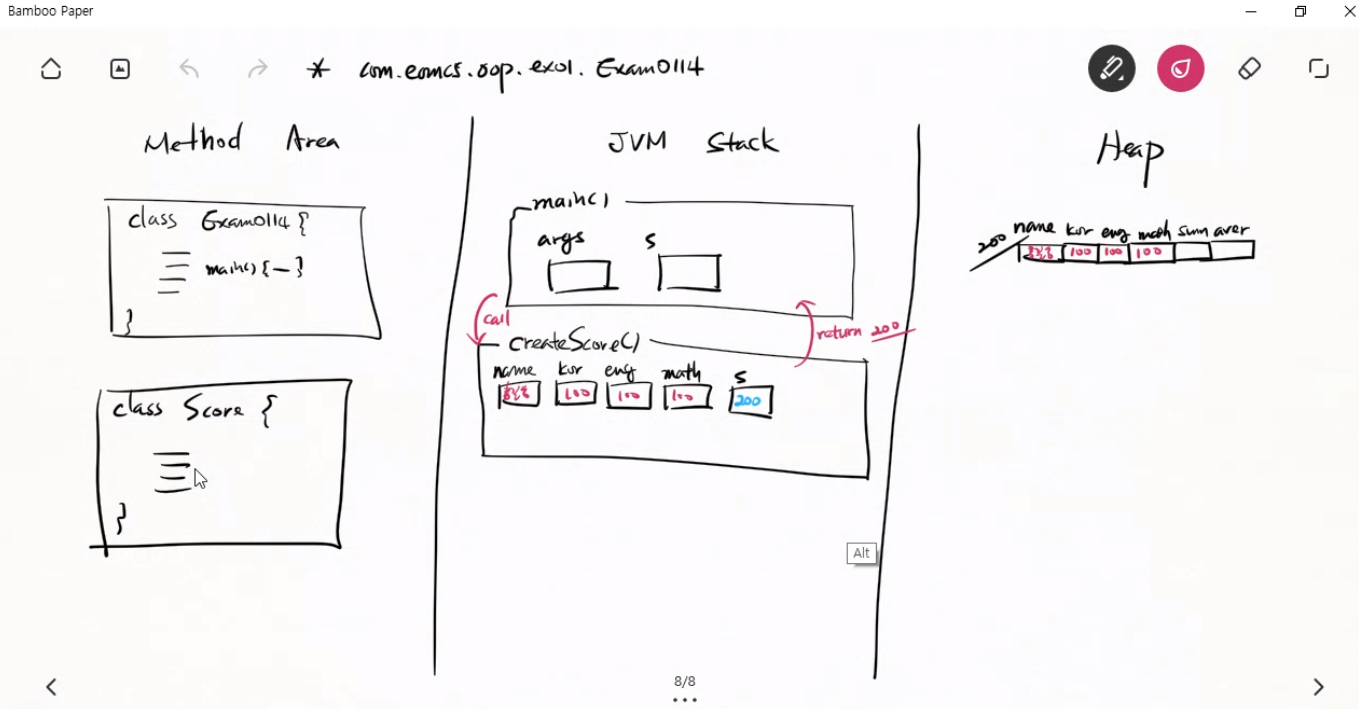 Bamboo Paper
* com.eomcs.oop.ex01.Exam0114
Method Area
class Exam0114 {
main() { ― }
}
class Score {
}
JVM Stack
main()
args s
call
return 200
createScore()
name kor eng math s
100 100 100 200
Alt
Heap
200
name kor eng math sum aver
100 100 100
8/8